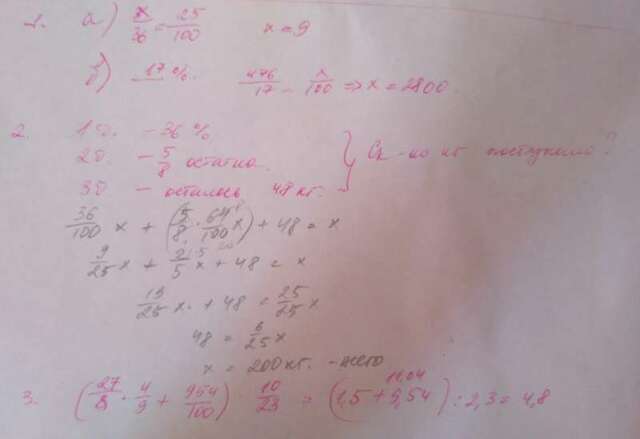 1. а) x/36 = 25/100 x = 9
б) 17%. 476/17 = x/100 ⇒ x = 2800
2. 1д. - 36%
2д. - 5/8 остатка
3д. - осталось 48 кг. } Ск-ко кг поступило?
36/100 x + (5/8 · 64/100 x) + 48 = x
9/25 x + 2/5 x + 48 = x
19/25 x + 48 = 25/25 x
48 = 6/25 x
x = 200 кг. - всего
3. (27/8 · 4/9 + 954/100) 10/23 = (1,5 + 9,54) : 2,3 = 4,8
11,04